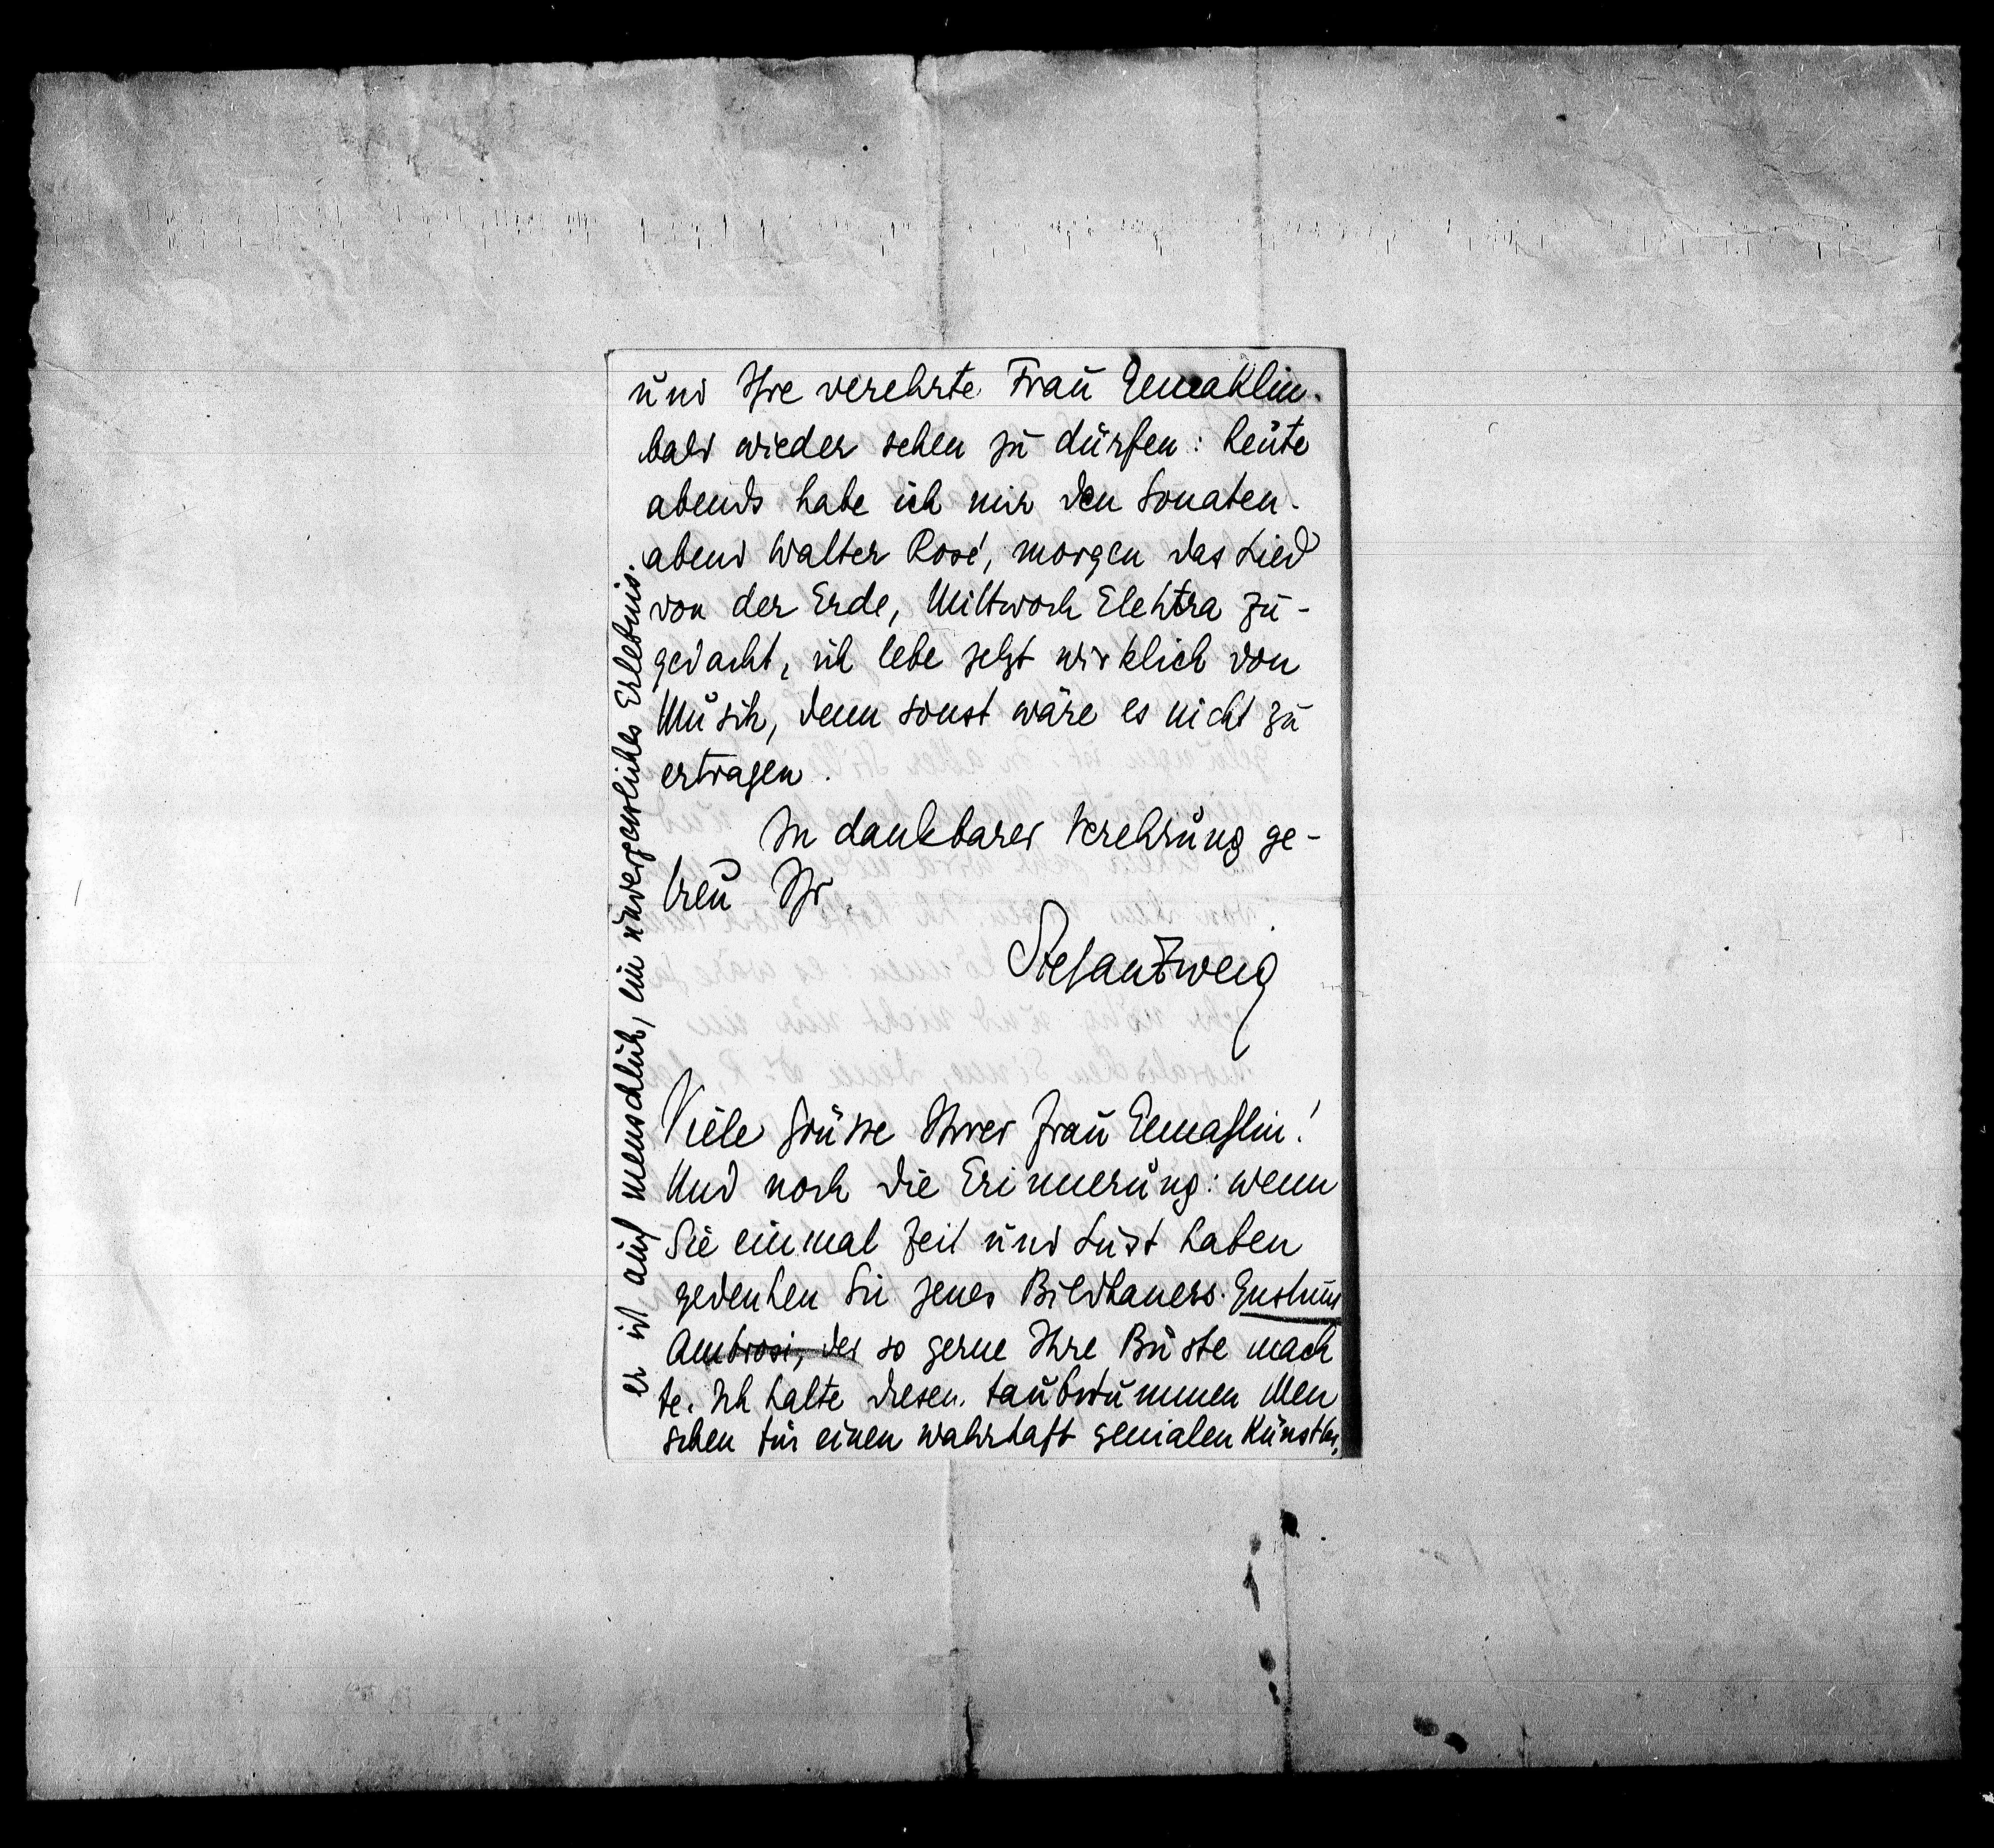 und Ihre verehrte Frau Gemahlin
bald wieder sehen zu dürfen: heute
abends habe ich mir den Sonaten-
abend Walter Rosé, morgen das Lied
von der Erde, Mittwoch Elektra zu-
gedacht, ich lebe jetzt wirklich von
Musik, denn sonst wäre es nicht zu
ertragen.
In dankbarer Verehrung ge-
treu Ihr
Stefan Zweig
Viele Grüsse Ihrer Frau Gemahlin!
Und noch die Erinnerung: wenn
Sie einmal Zeit und Lust haben
gedenken Sie jenes Bildhauers Gustinus
Ambrosi, der so gerne Ihre Büste mach
te. Ich halte diesen taubstummen Men
schen für einen wahrhaft genialen Künstler,
er ist auch menschlich, ein unvergessliches Erlebnis.